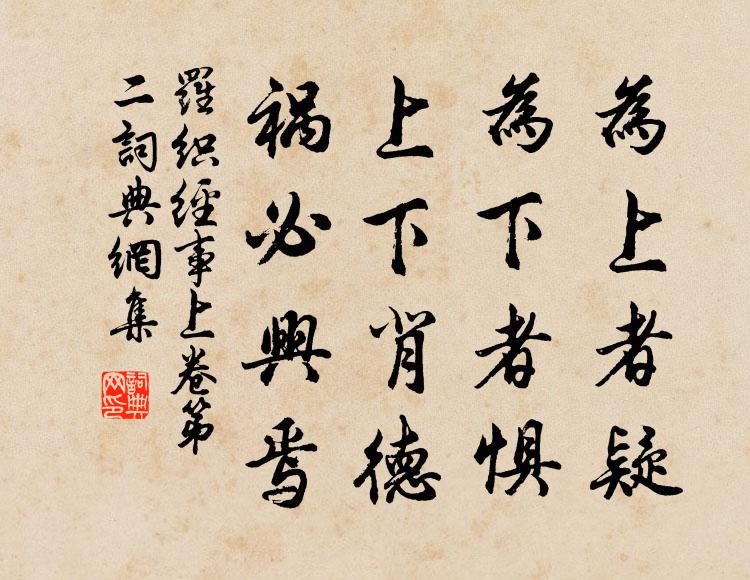 為上者疑
為下者懼
上下肖德
禍必興焉
羅織經事上卷第
二詞典網集
詞典
网印